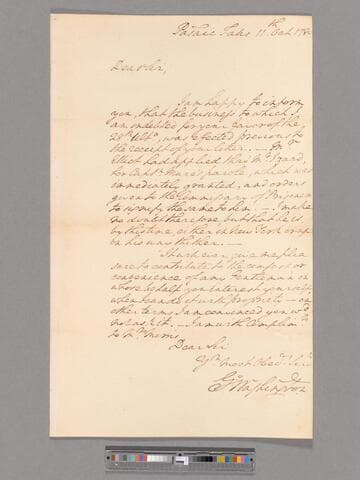 Passaic Falls 11th Oct 1780
Dear Sir,
I am happy to inform
you, that the business to which I
am indebted for your favor of the
28th Ulto, was effected previous to
the receipt of your letter. — Mr
Elliot had applied thro' Mr
for Captn parole, which was
immediately granted, and orders
given to the Commissary of Prisoners
to him — I make
no doubt therefore but that he is
by this time, either in New York or up
on his way thither. —
It will ever give me plea
sure to contribute to the comfort or
convenience of any Gentleman in
whose behalf you interest yourself
when it can be done with propriety — on
other terms I am convinced you wd
not ask it. — I am with Complimts
to Mrs Morris
Dear Sir
Yr most Obedt Servt
Go: Washington